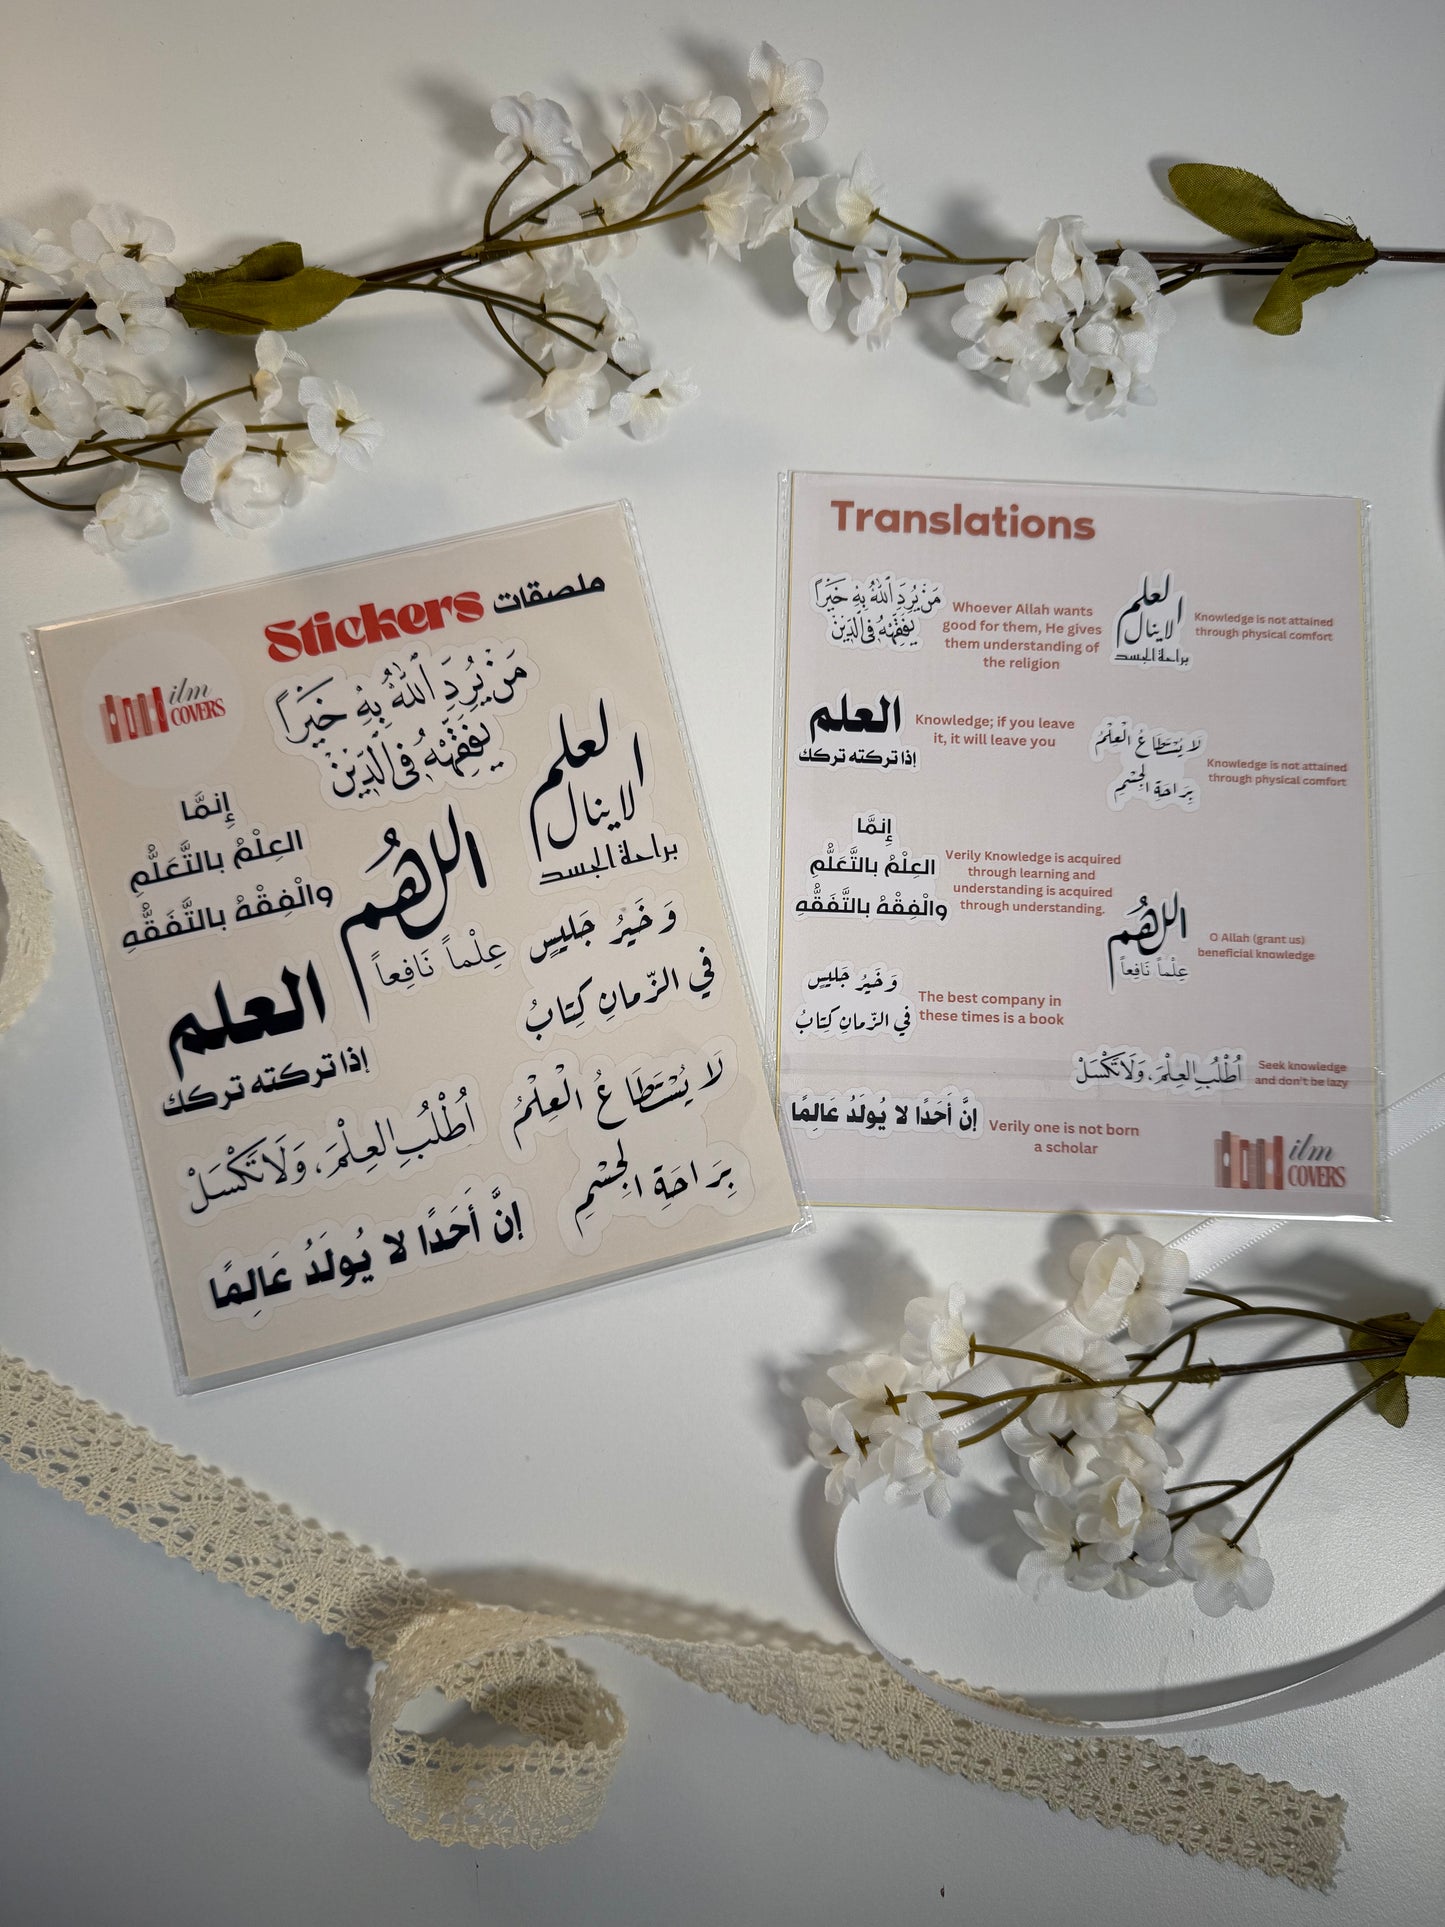 Stickers ملصقات
ilm
COVERS
مَنْ يُرِدِ ٱللَّهُ بِهِ خَيْرًا
يُفَقِّهْهُ فِي الدِّينِ
العلم
لا ينال
براحة الجسد
إِنَّمَا
العِلْمُ بالتَّعَلُّمِ
والْفِقْهُ بالتَّفَقُّهِ
اللهُم
عِلْماً نَافِعاً
وَ خَيْرُ جَليسٍ
في الزّمانِ كِتابُ
العلم
إذا تركته تركك
لَا يُسْتَطَاعُ الْعِلْمُ
بِرَاحَةِ الْجِسْمِ
اُطْلُبِ العِلْمَ، وَلَا تَكْسَلْ
إنَّ أَحَدًا لا يُولَدُ عَالِمًا
Translations
مَنْ يُرِدِ ٱللَّهُ بِهِ خَيْرًا
يُفَقِّهْهُ فِي الدِّينِ
Whoever Allah wants
good for them, He gives
them understanding of
the religion
العلم
لا ينال
براحة الجسد
Knowledge is not attained
through physical comfort
العلم
إذا تركته تركك
Knowledge; if you leave
it, it will leave you
لَا يُسْتَطَاعُ الْعِلْمُ
بِرَاحَةِ الْجِسْمِ
Knowledge is not attained
through physical comfort
إِنَّمَا
العِلْمُ بالتَّعَلُّمِ
والْفِقْهُ بالتَّفَقُّهِ
Verily Knowledge is acquired
through learning and
understanding is acquired
through understanding.
اللهُم
عِلْماً نَافِعاً
O Allah (grant us)
beneficial knowledge
وَ خَيْرُ جَليسٍ
في الزّمانِ كِتابُ
The best company in
these times is a book
اُطْلُبِ العِلْمَ، وَلَا تَكْسَلْ
Seek knowledge
and don't be lazy
إنَّ أَحَدًا لا يُولَدُ عَالِمًا
Verily one is not born
a scholar
ilm
COVERS